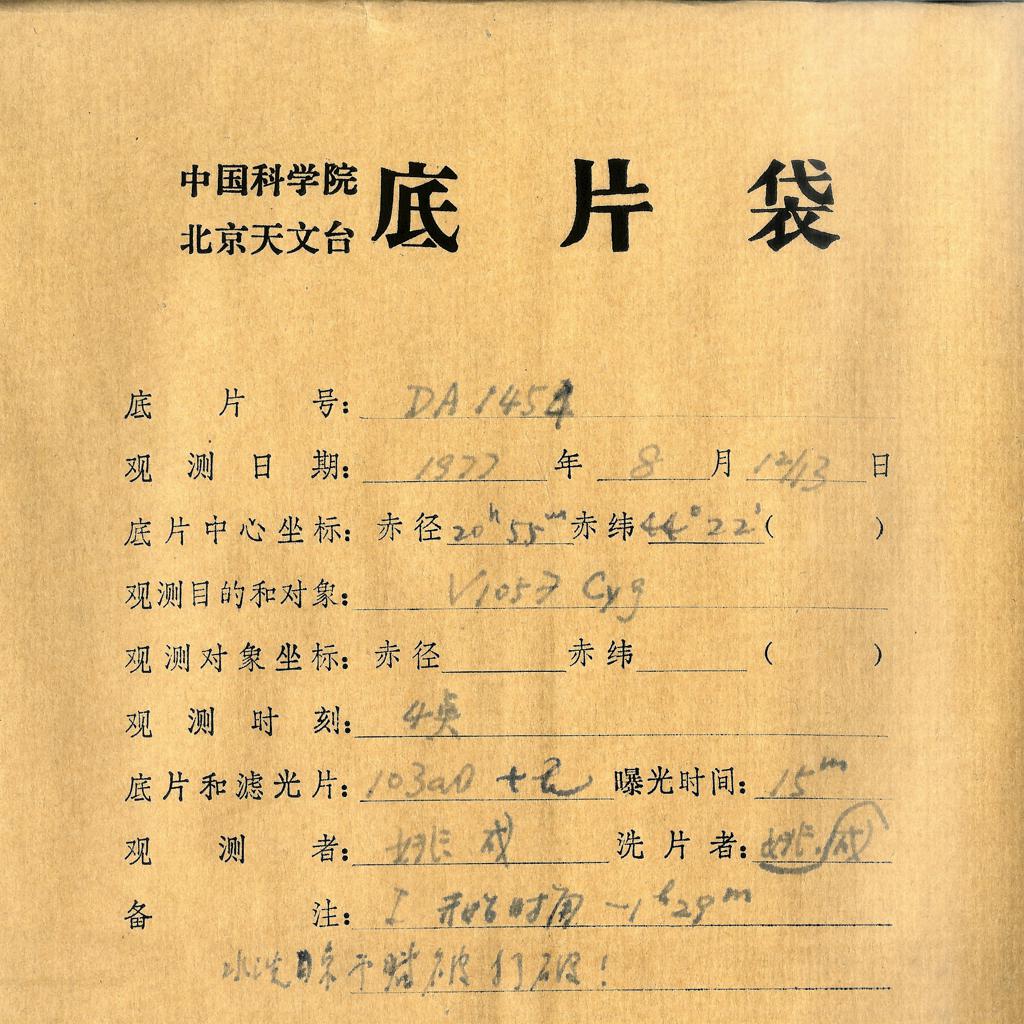 中国科学院
北京天文台 底片袋
底片号: DA 1454
观测日期: 1977 年 8 月 12/13 日
底片中心坐标: 赤径 20h 55m 赤纬 44° 22' ( )
观测目的和对象: V1057 Cyg
观测对象坐标: 赤径 赤纬 ( )
观测时刻: 4奌
底片和滤光片: 103aO + 曝光时间: 15m
观测者: 姚 成 洗片者: 姚 成
备注: I 开始时角 -1h29m
水洗晾干时被打破!